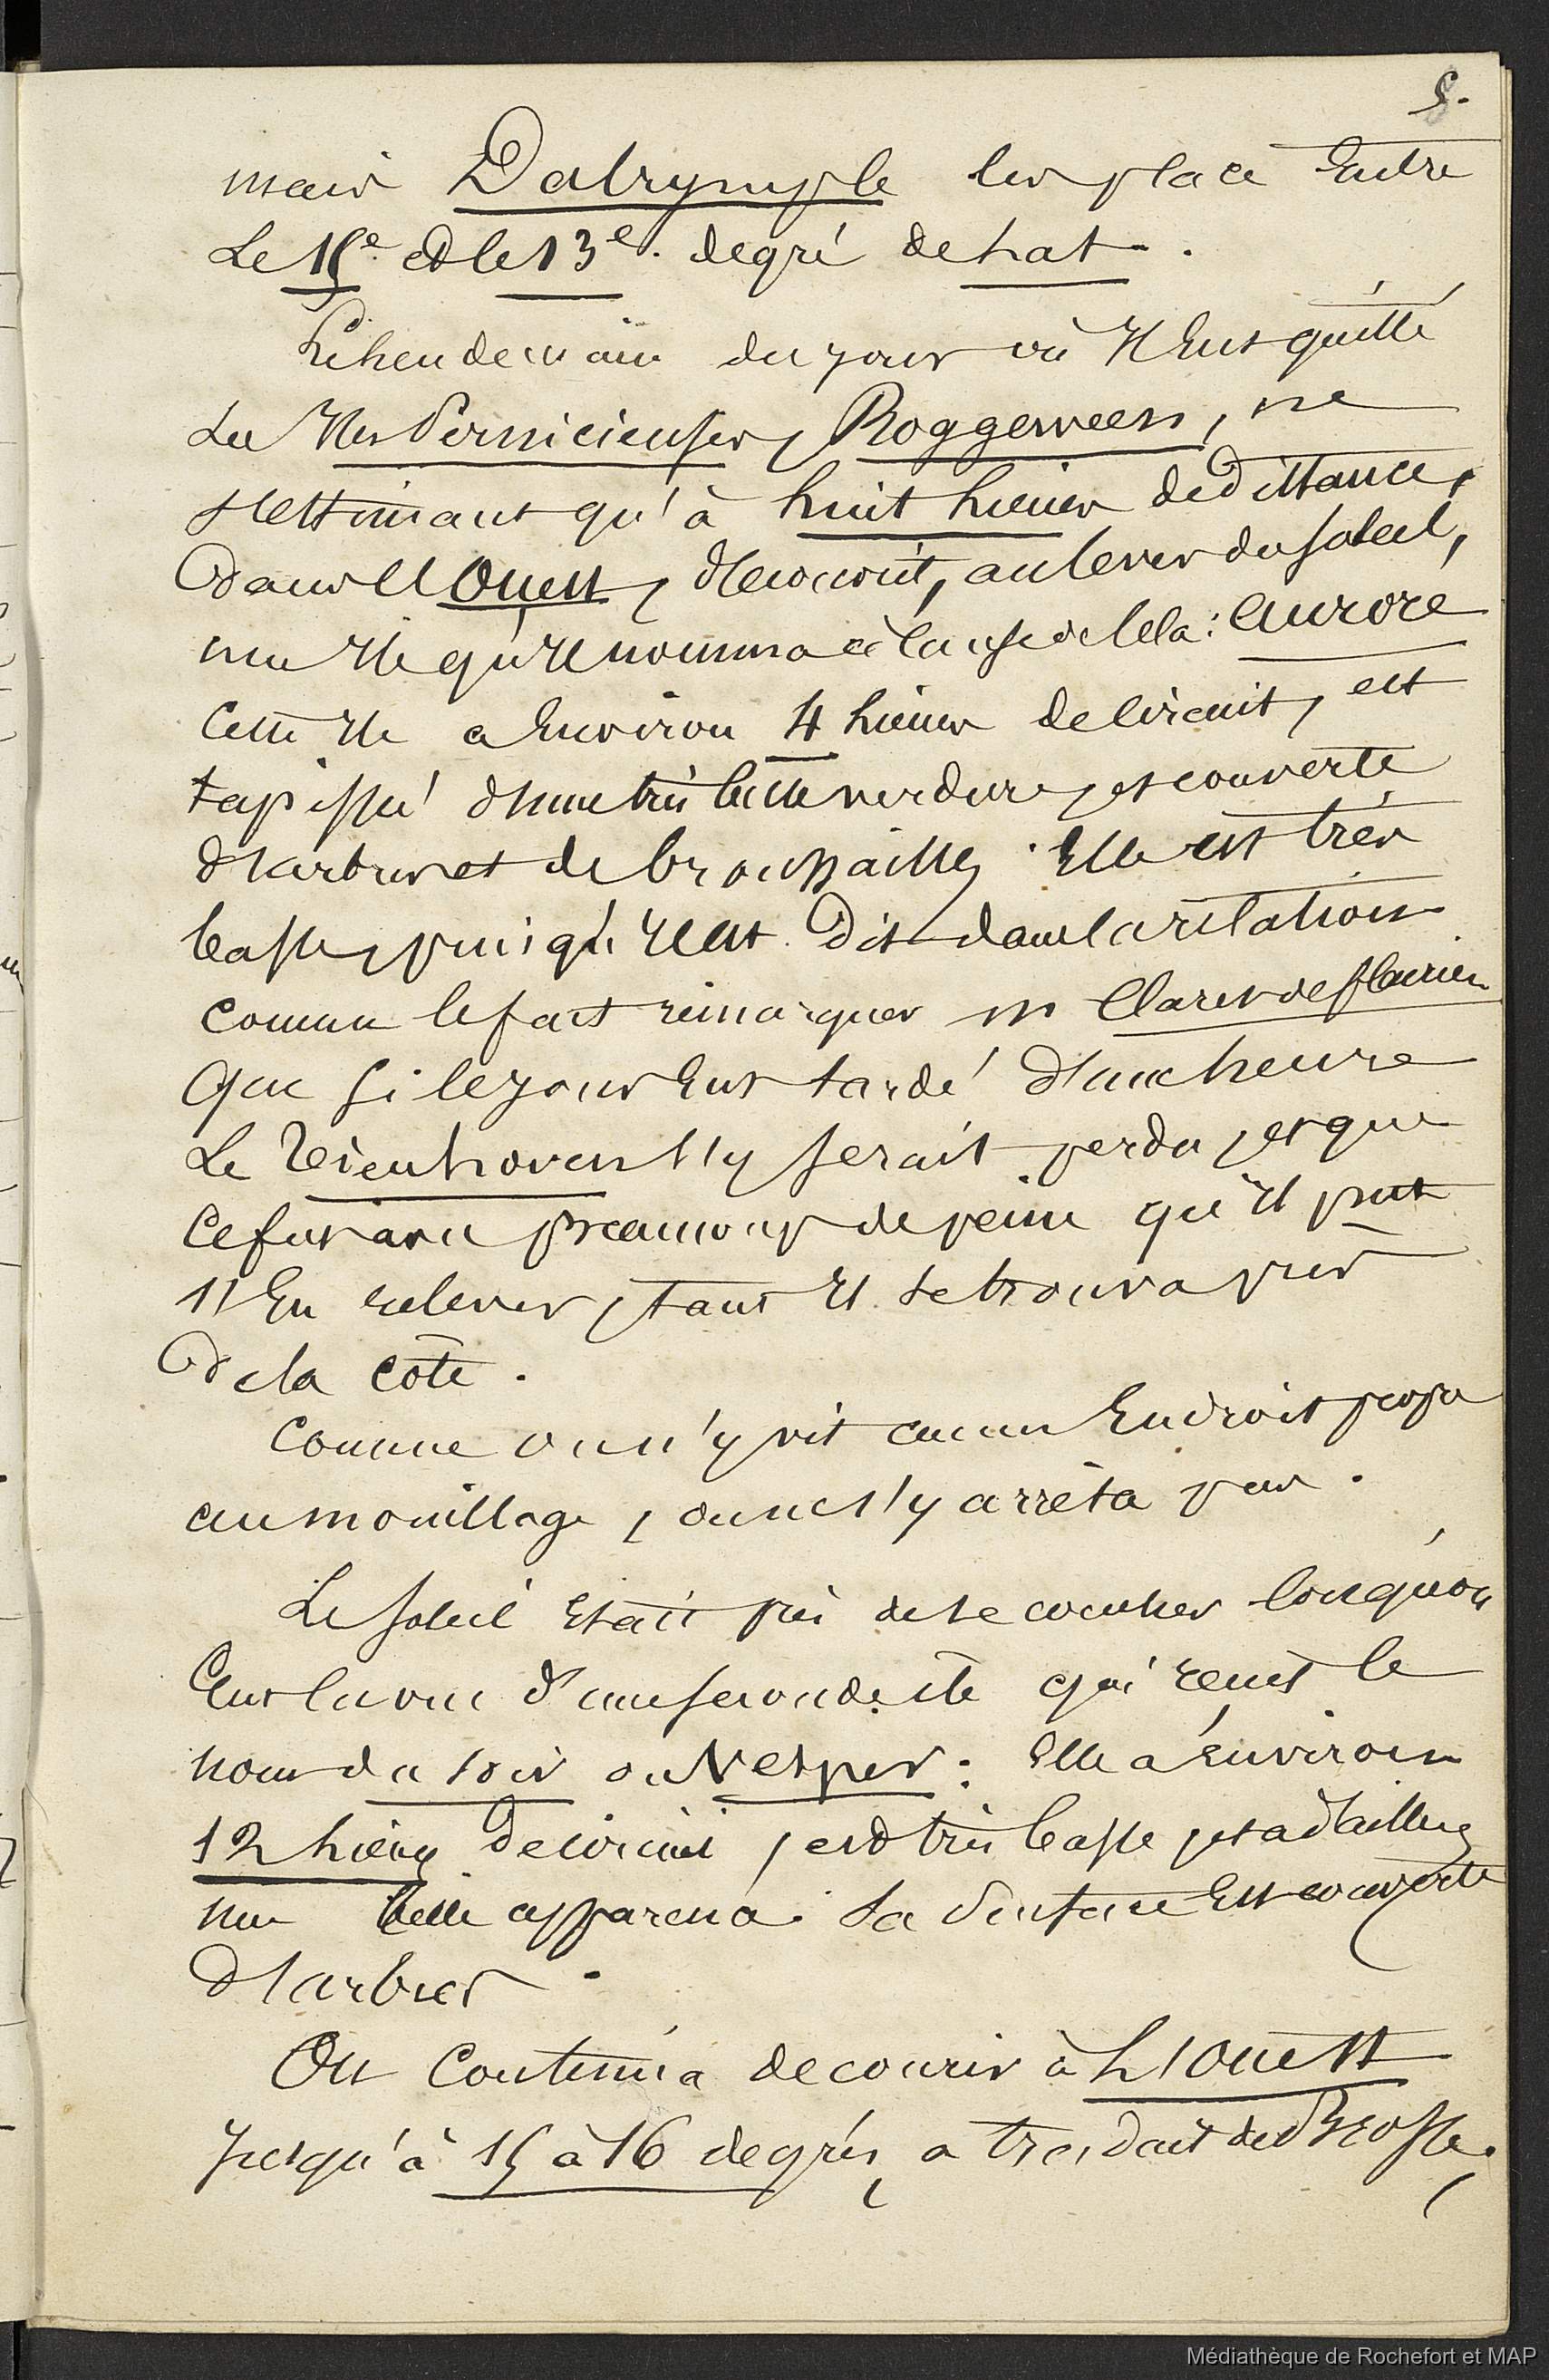 5.
mais Dalrymple les place Entre
Le 15e et le 13e. degré de Lat.
Le Lendemain du jour où Il Eut quitté
Les Iles Pernicieuses, Roggeween, ne
s'estimant qu'à huit lieues de distance,
Dans l'Ouest, découvrit, au lever du soleil,
une Ile qu'il nomma à cause de cela : Aurore
Cette Ile a Environ 4 lieues de circuit, est
tapissée d'une très belle verdure, et couverte
d'arbres et de broussailles. Elle est très
basse, puisqu'il est Dit dans la relation
Comme le fait remarquer M Claret de fleurieu
Que si le jour Eut tardé d'une heure
Le Tienhoven s'y serait perdu, et que
Ce fut avec beaucoup de peine qu'il put
s'En relever, tant Il se trouva près
De la côte.
Comme on n'y vit aucun Endroit propre
au mouillage, on ne s'y arrêta pas.
Le soleil Etait près de se coucher lorsqu'on
Eut la vue d'une seconde ile qui reçut le
nom du soir ou Vesper : Elle a Environ
12 lieues De circuit, est très basse, et a d'ailleurs
une belle apparence. Sa surface Est couverte
d'arbres.
On Continua de courir à L'Ouest
Jusqu'à 15 à 16 degrés, a traduit de Brosses,
Médiathèque de Rochefort et MAP